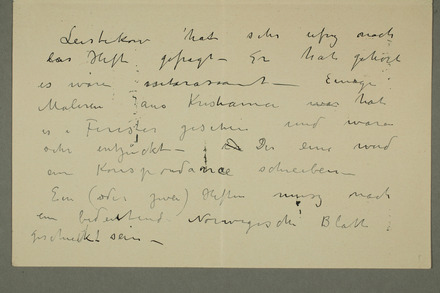 Leistikow hat sehr efrig nach
das Heft gefragt – Er hat gehört
es wäre interessant – Einige
Maleren aus Kristiania hat
es i Fenster gesehen und waren
sehr entzückt – Der eine wird
ein Korrespondance schreiben –
Ein (oder zwei) Heften musz nach
ein bedeutend Norwegische Blatt
geschickt sein –